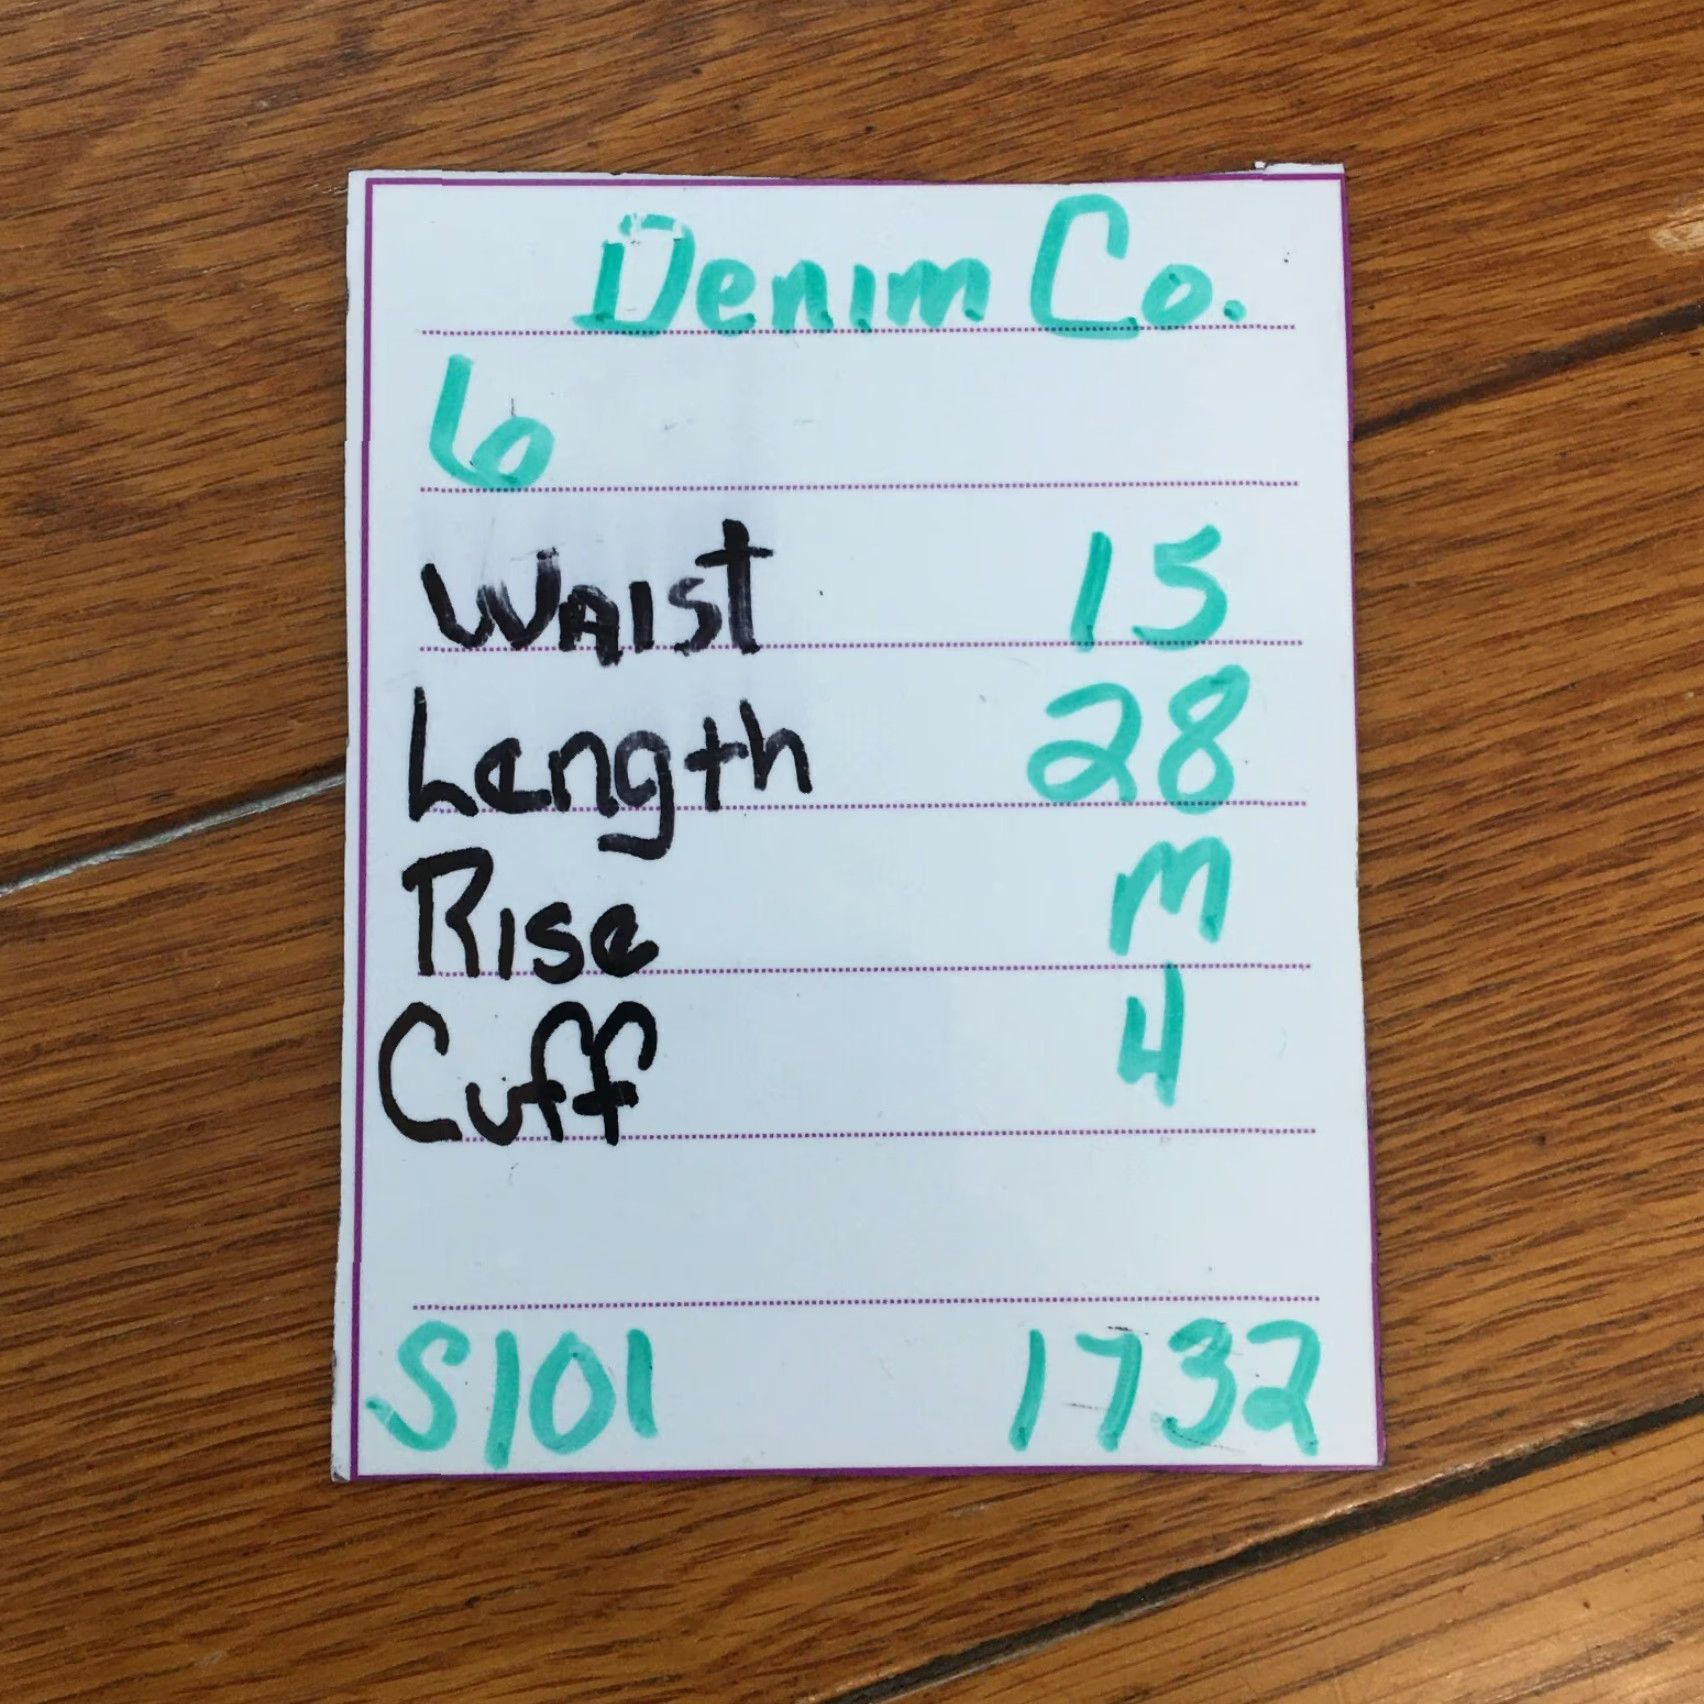 Denim Co.
6
Waist 15
Length 28
Rise M
Cuff 4
S101 1732